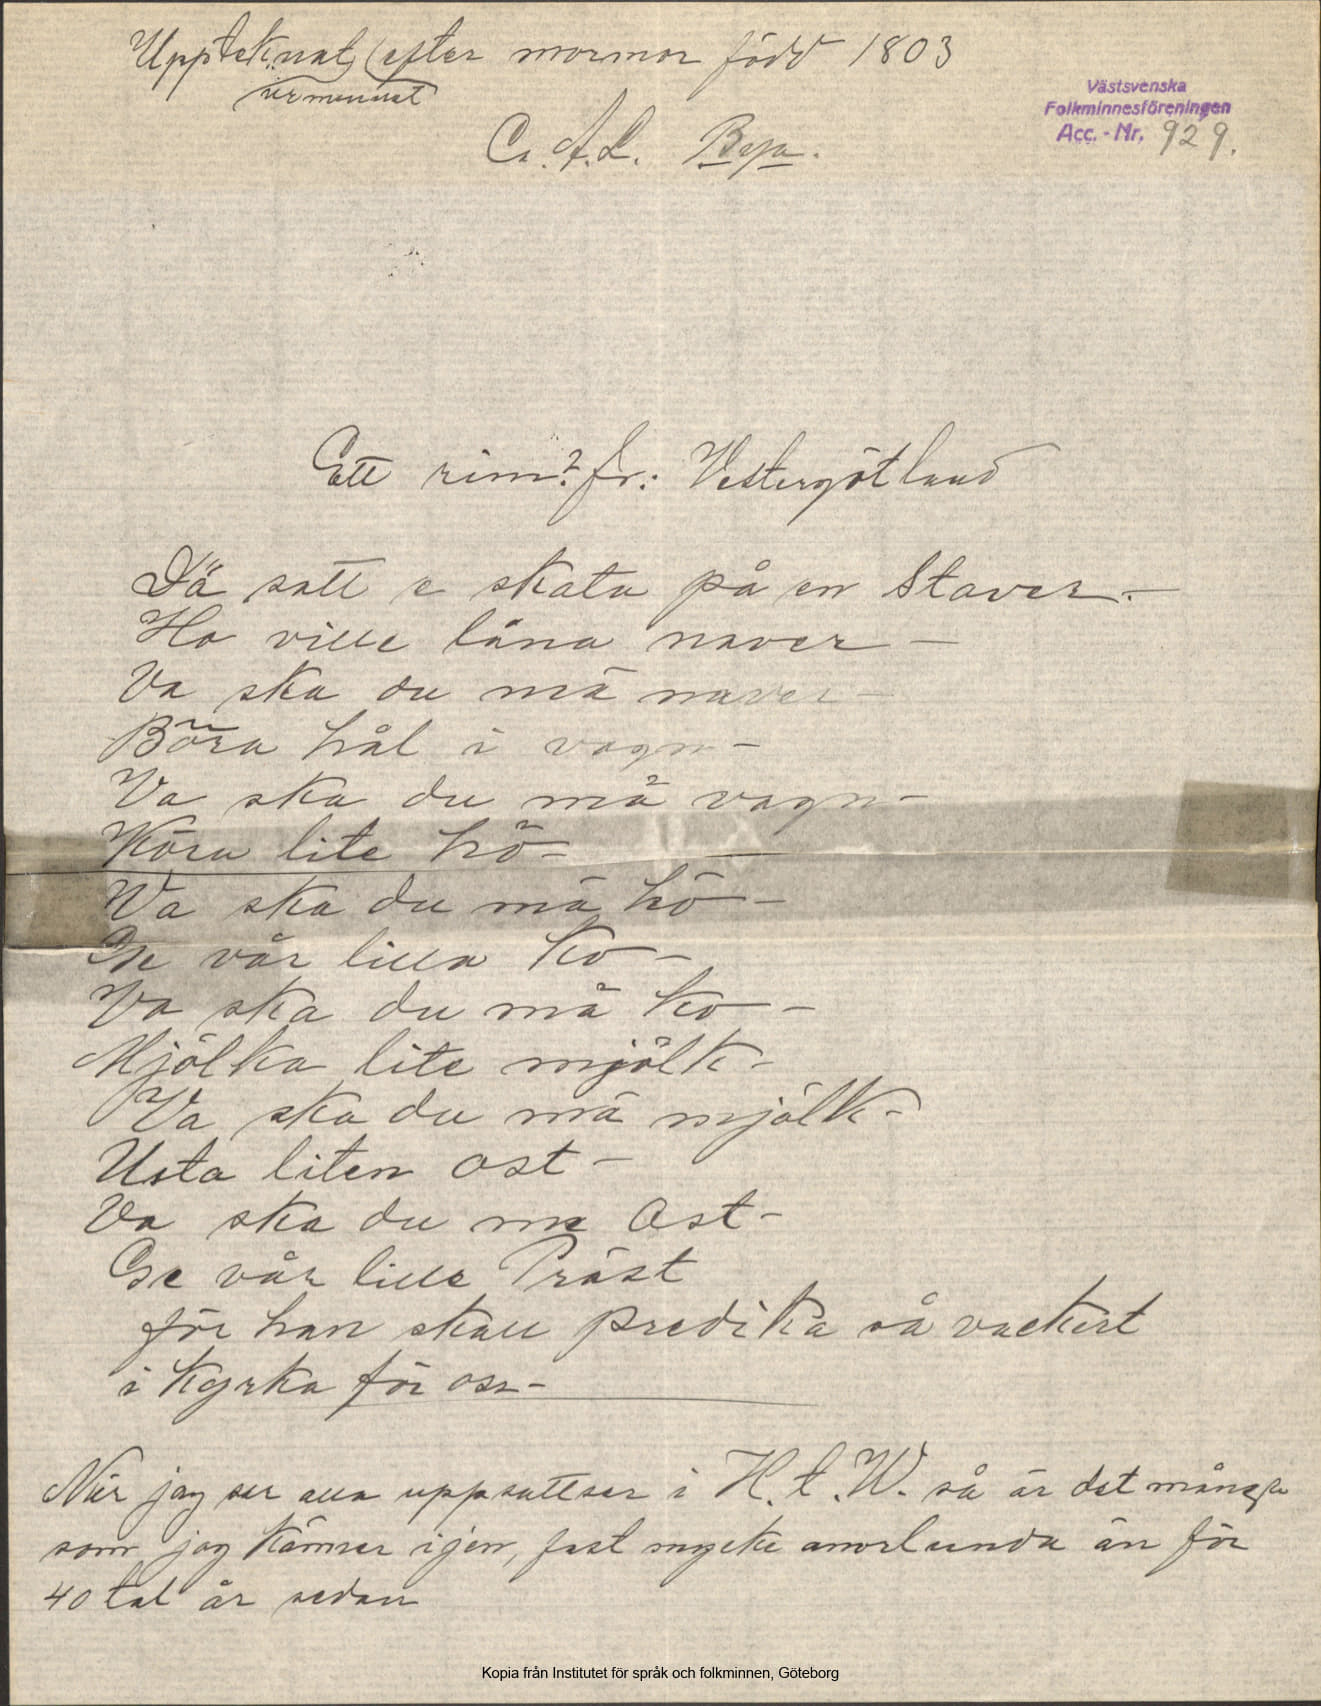 Uppteknat (efter mormor född 1803
ur minnet
C. A. L.
Västsvenska
Folkminnesföreningen
Acc. - Nr. 929.
Ett rim? fr: Vestergötland
Dä satt e skata på en Staver. —
Ho ville låna naver —
Va ska du mä naver —
Böra hål i vagn —
Va ska du mä vagn —
Köra lite hö —
Va ska du mä hö —
Ge vår lilla ko —
Va ska du mä ko —
Mjölka lite mjölk —
Va ska du mä mjölk —
Usta liten ost —
Va ska du mä Ost —
Ge vår lille Präst
för han skall predika så vackert
i kyrka för oss —
När jag ser alla uppsattser i H. t. W. så är det många
som jag känner igen, fast mycke anorlunda än för
40 tal år sedan
Kopia från Institutet för språk och folkminnen, Göteborg